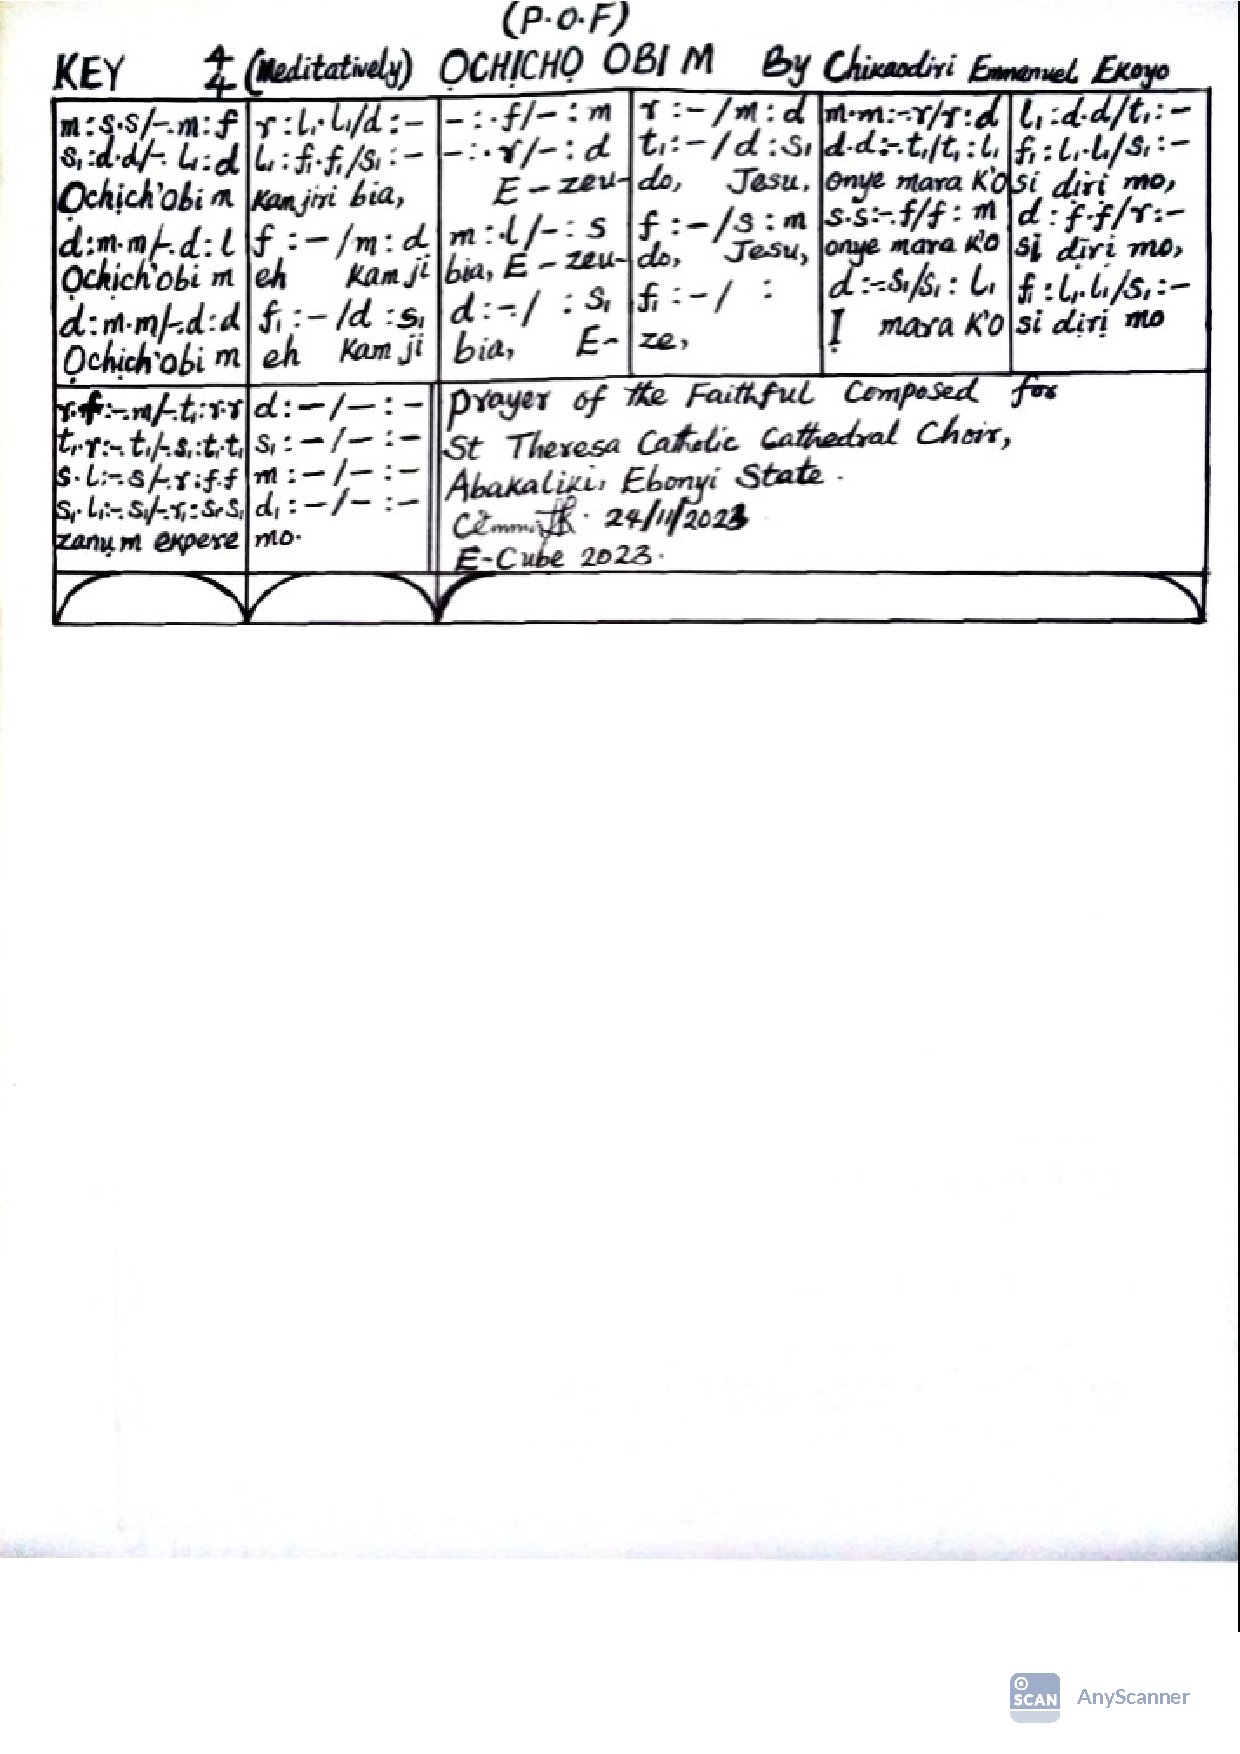 (P.O.F)
KEY 4/4 (Meditatively) ỌCHỊCHỌ OBI M By Chikaodiri Emmanuel Ekoyo
m:s.s/-.m:f | r:l₁.l₁/d:- | -:.f/-:m | r:-/m:d | m.m:-.r/r:d | l₁:d.d/t₁:-
s₁:d.d/-.l₁:d | l₁:f₁.f₁/s₁:- | -:.r/-:d | t₁:-/d:s₁ | d.d:-.t₁/t₁:l₁ | f₁:l₁.l₁/s₁:-
Ọchịch'obi m | kanjiri bia, | E-zeu- | do, Jesu, | onye mara K'O | si dịrị mo,
d:m.m/-.d:l | f:-/m:d | m:.l/-:s | f:-/s:m | s.s:-.f/f:m | d:f.f/r:-
Ọchịch'obi m | eh Kam ji | bia, E-zeu- | do, Jesu, | onye mara K'O | si dịrị mo,
d:m.m/-.d:d | f₁:-/d:s₁ | d:-/ :s₁ | f₁:-/ : | d:-.s₁/s₁:l₁ | f₁:l₁.l₁/s₁:-
Ọchịch'obi m | eh Kam ji | bia, E- | ze, | Ị mara K'O | si dịrị mo
r.f:-.m/-.t₁:r.r | d:-/-:-
t₁.r:-.t₁/-.s₁:t₁.t₁ | s₁:-/-:-
s.l:-.s/-.r:f.f | m:-/-:-
s₁.l₁:-.s₁/-.r₁:s₁.s₁ | d₁:-/-:-
zanụ m ekpere | mo.
Prayer of the Faithful Composed for
St Theresa Catholic Cathedral Choir,
Abakaliki, Ebonyi State.
24/11/2023
E-Cube 2023.
SCAN AnyScanner